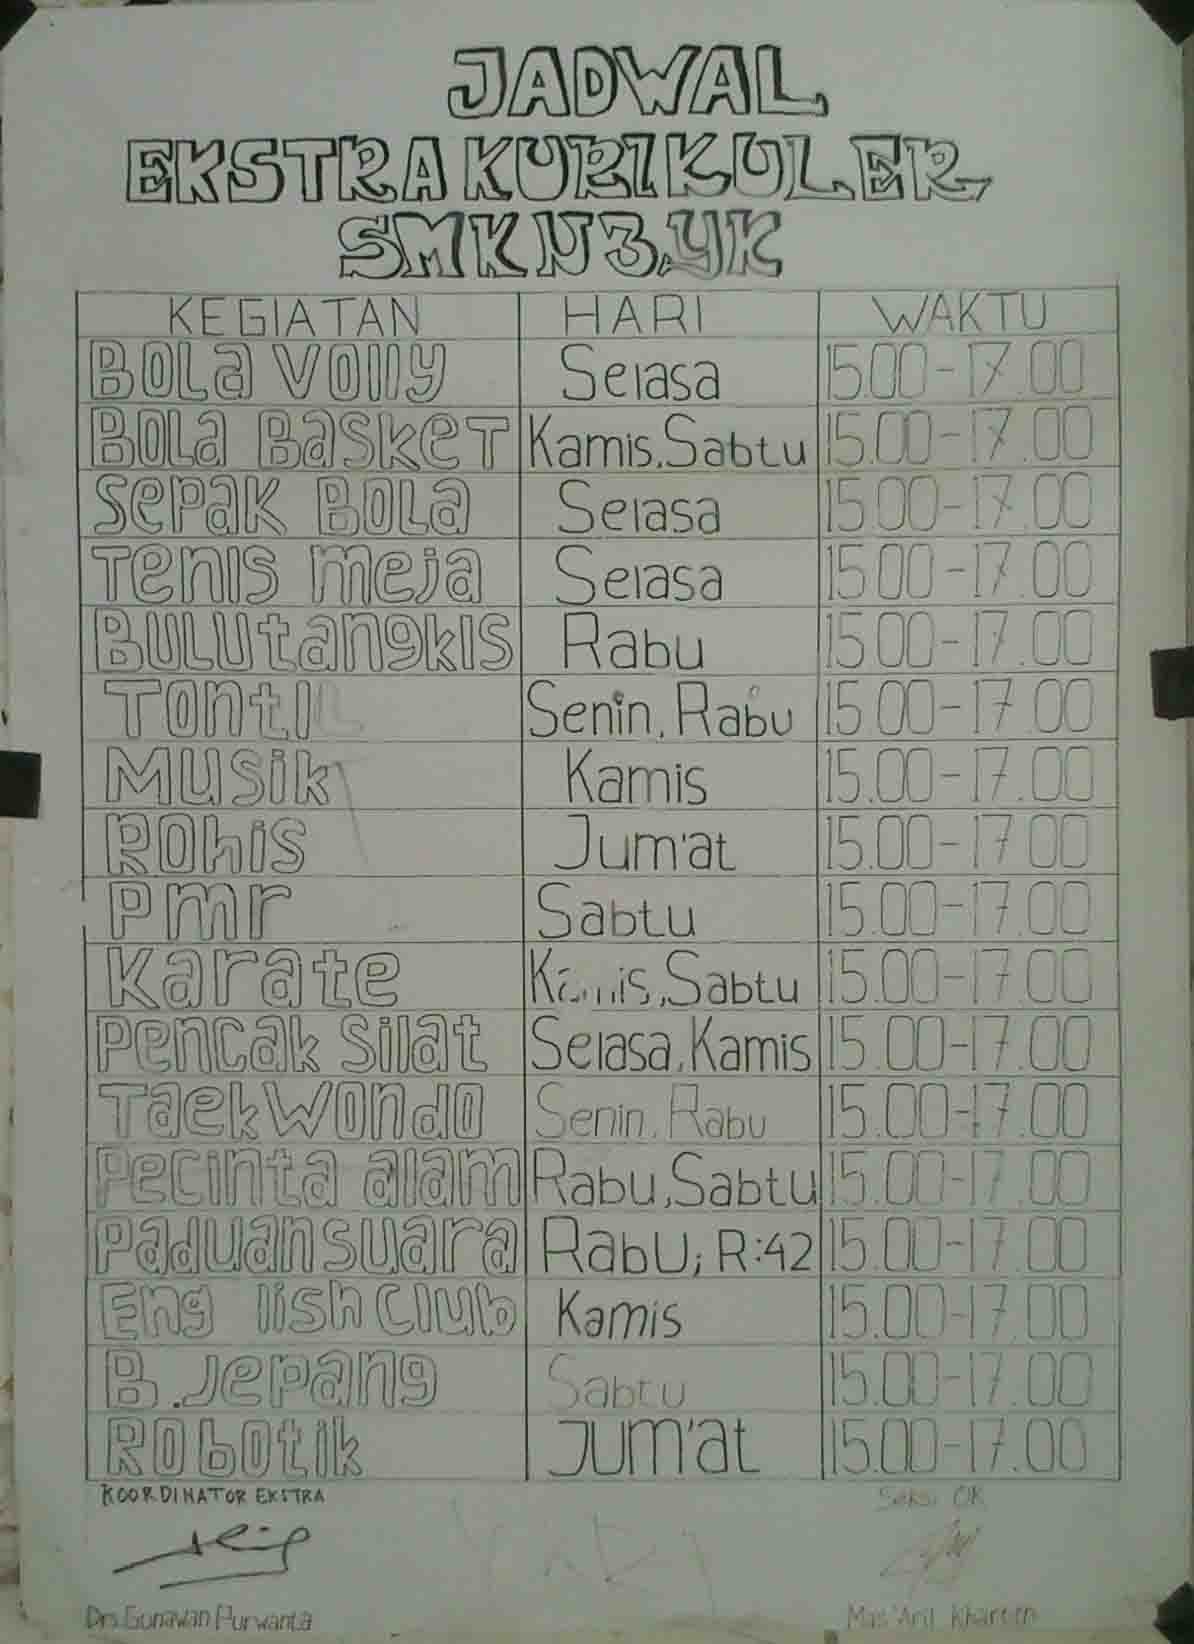 JADWAL
EKSTRAKURIKULER
SMKN 3 YK
KEGIATAN HARI WAKTU
Bola Volly Selasa 15.00-17.00
Bola Basket Kamis, Sabtu 15.00-17.00
Sepak Bola Selasa 15.00-17.00
Tenis meja Selasa 15.00-17.00
Bulutangkis Rabu 15.00-17.00
Tonti Senin, Rabu 15.00-17.00
Musik Kamis 15.00-17.00
Rohis Jum'at 15.00-17.00
Pmr Sabtu 15.00-17.00
Karate Kamis, Sabtu 15.00-17.00
Pencak Silat Selasa, Kamis 15.00-17.00
Taekwondo Senin, Rabu 15.00-17.00
Pecinta alam Rabu, Sabtu 15.00-17.00
Paduansuara Rabu; R:42 15.00-17.00
English Club Kamis 15.00-17.00
B. Jepang Sabtu 15.00-17.00
Robotik Jum'at 15.00-17.00
KOORDINATOR EKSTRA Seksi OK
Drs. Gunawan Purwanta Mas 'Aril